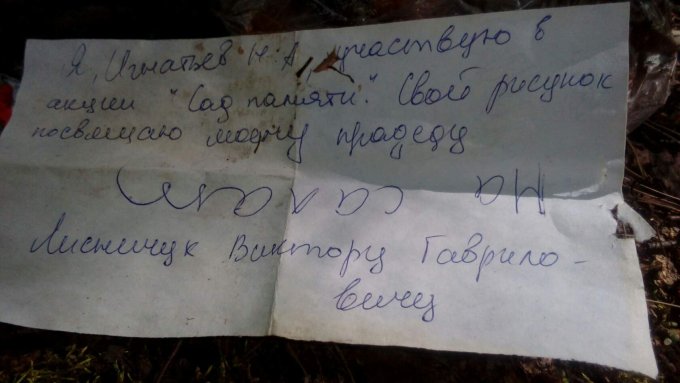 Я, Игнатьев Н.А, участвую в
акции "Сад памяти". Свой рисунок
посвящаю моему прадеду
Лисничук Виктору Гаврило-
вичу